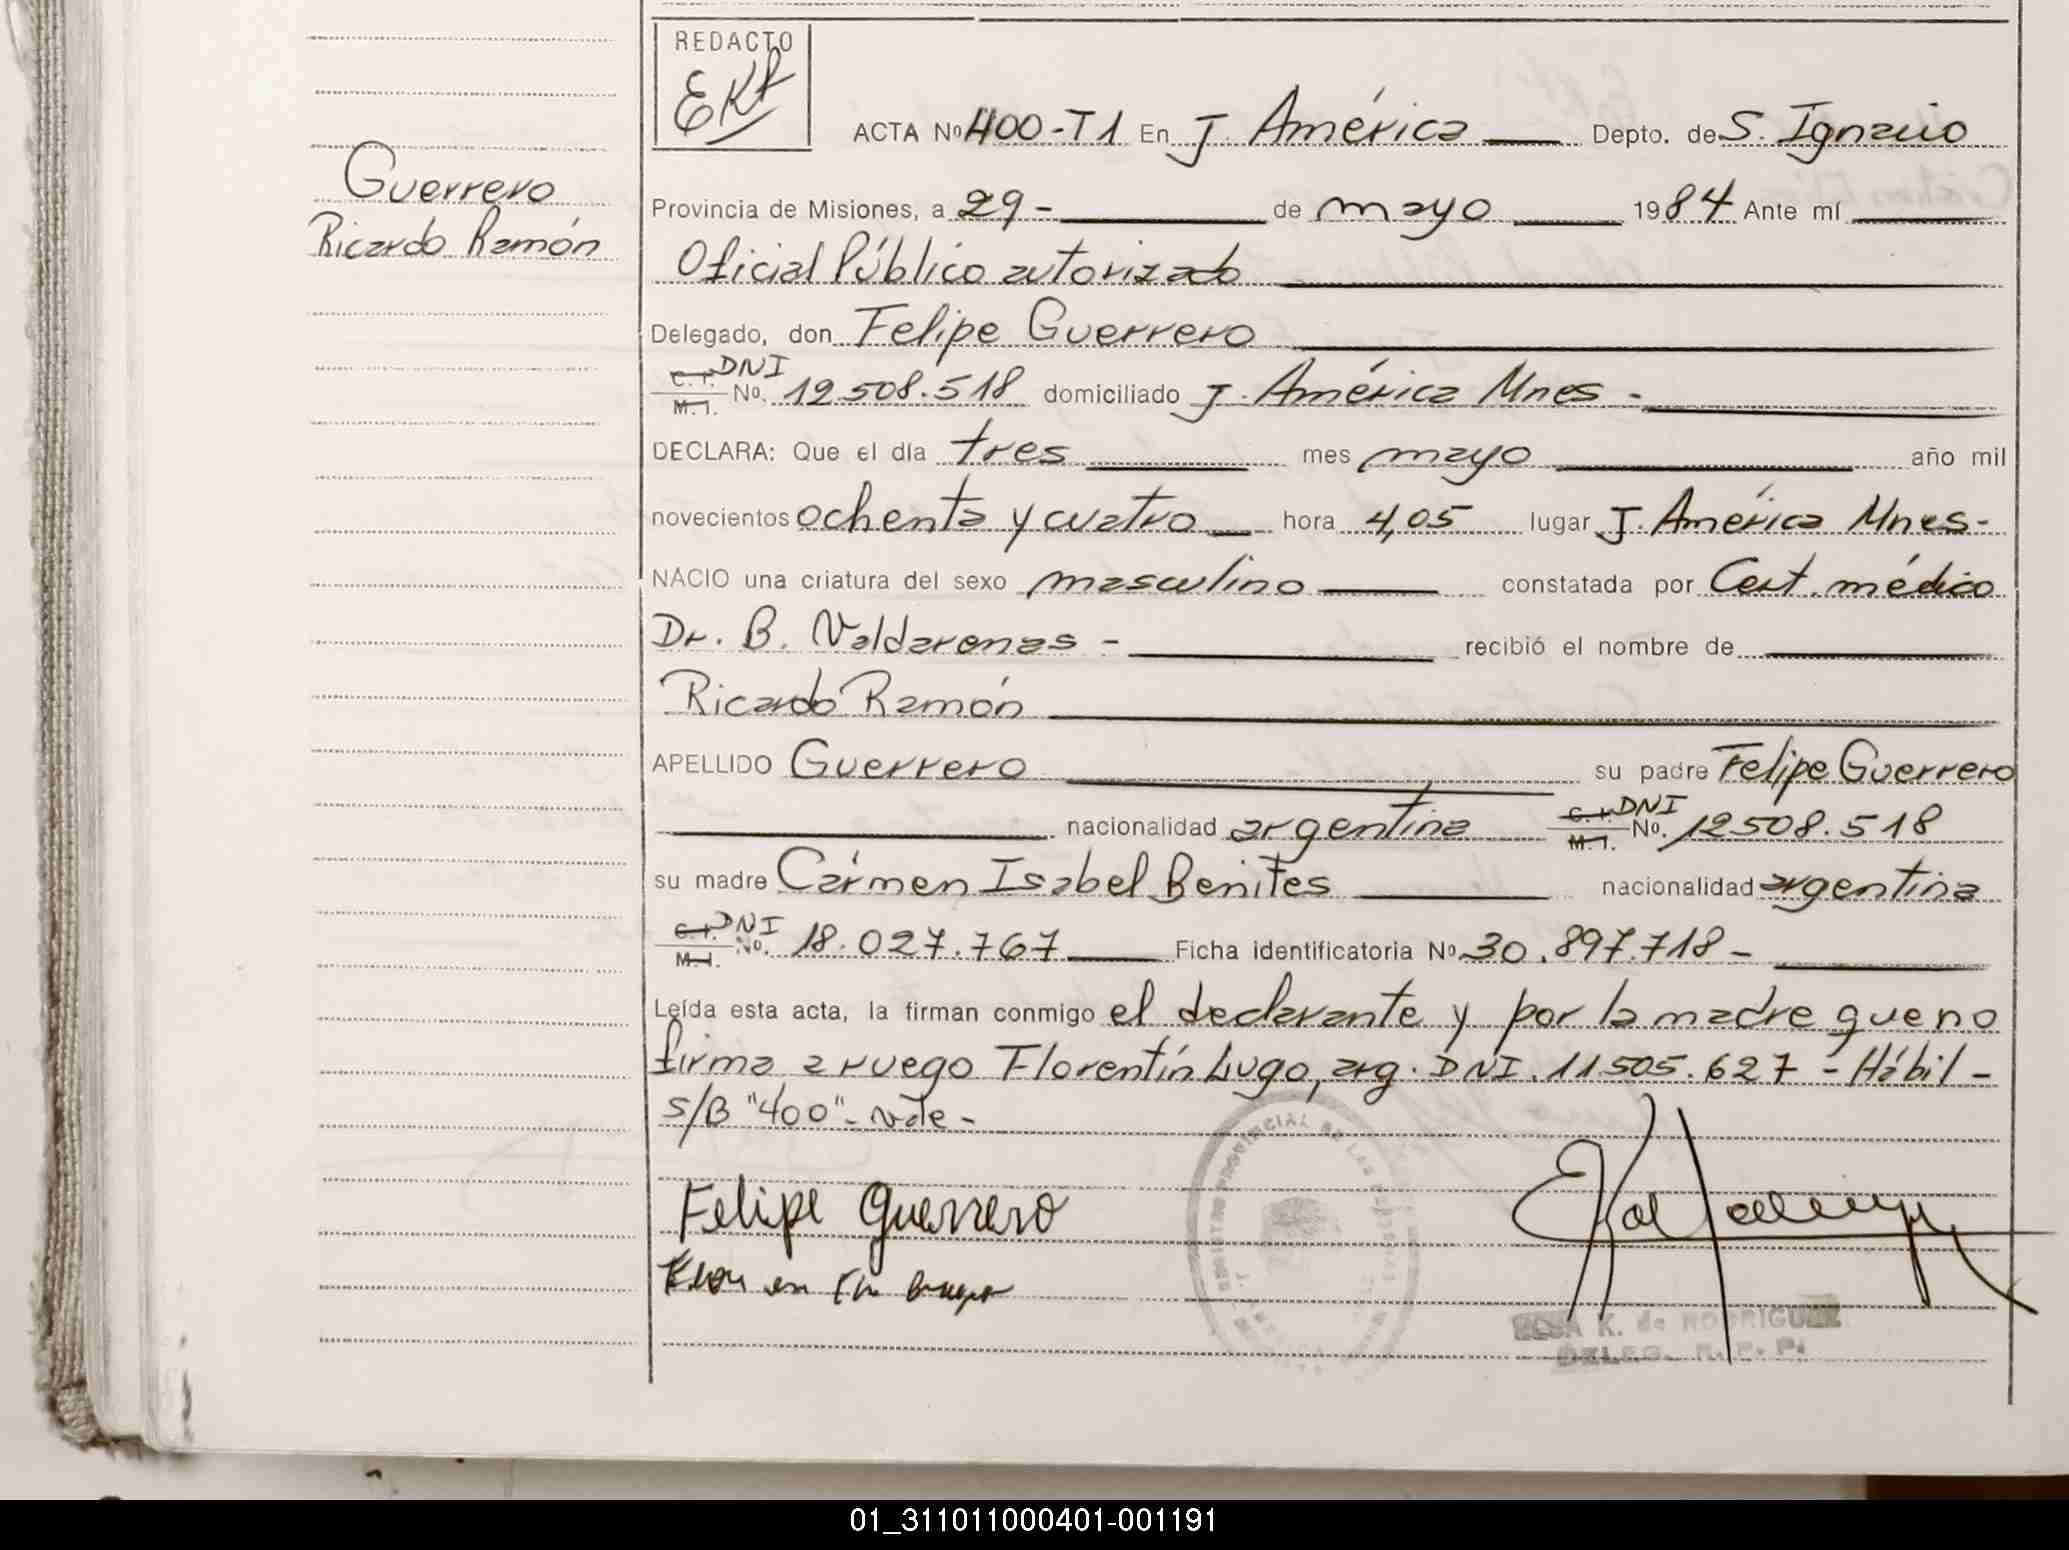 REDACTO
EKR
ACTA Nº 400-T1 En J. América Depto. de S. Ignacio
Guerrero
Ricardo Ramón
Provincia de Misiones, a 29- de mayo 1984 Ante mí
Oficial Público autorizado
Delegado, don Felipe Guerrero
C.I. DNI
M.I. Nº. 12.508.518 domiciliado J. América Mnes -
DECLARA: Que el día tres mes mayo año mil
novecientos ochenta y cuatro hora 4,05 lugar J. América Mnes-
NACIO una criatura del sexo masculino constatada por Cert. médico
Dr. B. Valdarenas - recibió el nombre de
Ricardo Ramón
APELLIDO Guerrero su padre Felipe Guerrero
nacionalidad argentina C.I. DNI M.I. Nº. 12508.518
su madre Cármen Isabel Benites nacionalidad argentina
C.I. DNI
M.I. Nº. 18.027.767 Ficha identificatoria Nº 30.897.718 -
Leída esta acta, la firman conmigo el declarante y por la madre que no
firma a ruego Florentín Lugo, arg. DNI. 11.505.627 - Hábil -
S/B "400"- vale -
Felipe Guerrero
REGISTRO PROVINCIAL DE LAS PERSONAS
K. de RODRIGUEZ
DELEG. R. P. P.
01_311011000401-001191